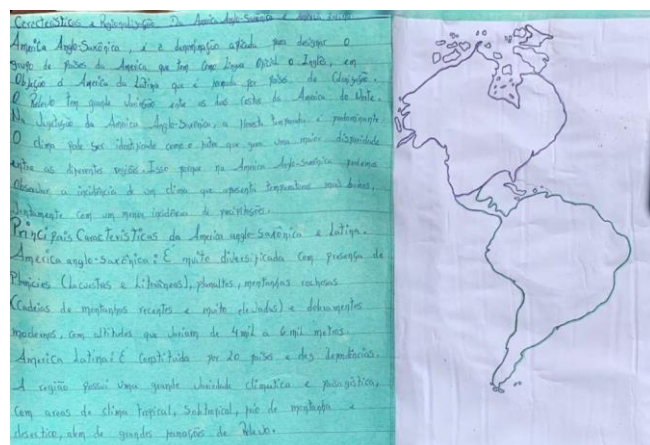 Cerecteristicas e Regionalização Da America Anglo-Saxônica e America Latina
America Anglo-Saxônica, é a denominação aplicada para designar o
grupo de Países da America que tem como língua oficial o Inglês, em
Objeção a America da Latina que é formada por países de Colonização.
O Relevo tem grande Variação entre as duas costas da America do Norte.
Na Vegetação da America Anglo-Saxônica, a floresta temperada é predominante
O clima pode ser identificado como o fator que gera uma maior disparidade
entre as diferentes regiões. Isso porque na America Anglo-Saxônica podemos
Observar a incidência de um clima que apresenta temperaturas mais baixas,
Juntamente com um menor incidência de precipitações.
Principais Características da America anglo-saxônica e Latina.
America anglo-saxônica: É muito diversificada com presença de
Planícies (Lacustres e Litorâneos), planaltos, montanhas rochosas
(Cadeias de montanhas recentes e muito elevadas) e dobramentos
modernos, com altitudes que variam de 4 mil a 6 mil metros.
America Latina: É Constituída por 20 países e dez dependências.
A região possui uma grande variedade climatica e paisagística,
com areas de clima tropical, Subtropical, frio de montanha e
desertico, alem de grandes variações de Relevo.